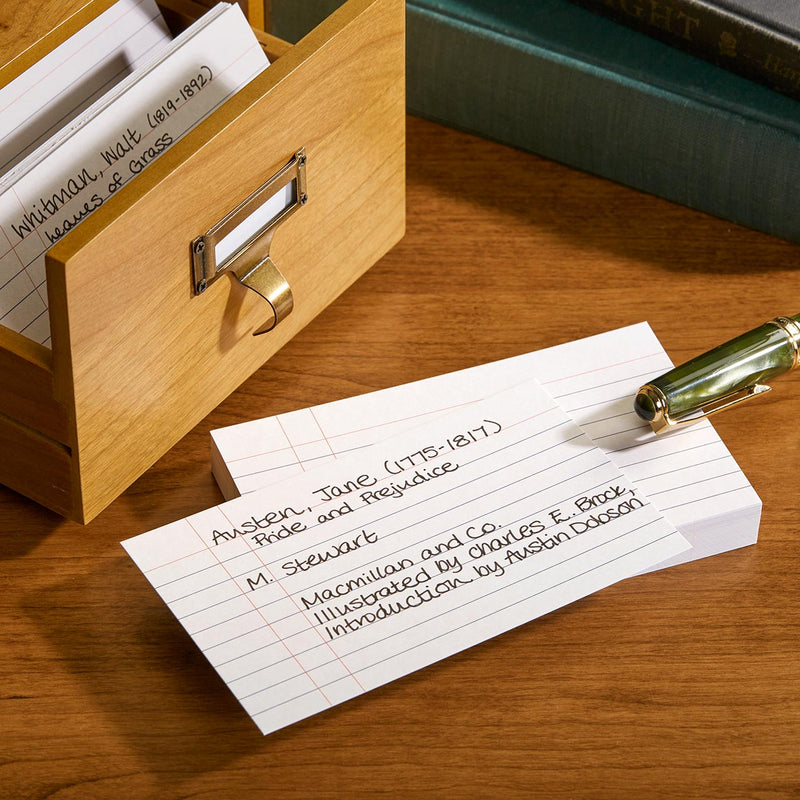 Whitman, Walt (1819-1892)
Leaves of Grass
Austen, Jane (1775-1817)
Pride and Prejudice
M. Stewart
Macmillan and Co.
Illustrated by Charles E. Brock,
Introduction by Austin Dobson